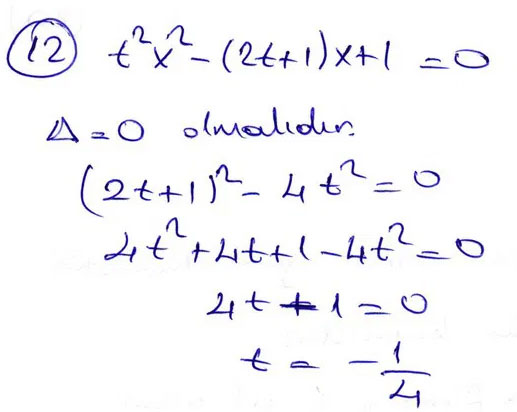 12 t²x² - (2t+1)x+1 = 0
Δ = 0 olmalıdır.
(2t+1)² - 4t² = 0
4t² + 4t + 1 - 4t² = 0
4t + 1 = 0
t = -1/4